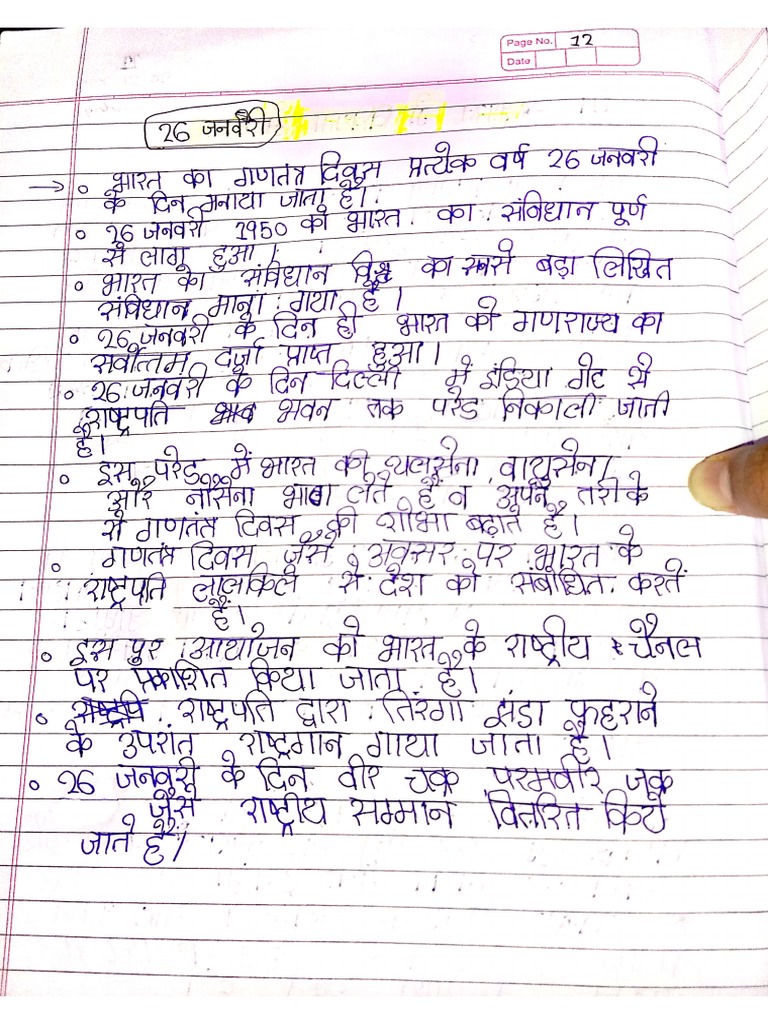 Page No. 12
Date
26 जनवरी
→ • भारत का गणतंत्र दिवस प्रत्येक वर्ष 26 जनवरी
के दिन मनाया जाता है।
• 26 जनवरी 1950 को भारत का संविधान पूर्ण
से लागू हुआ।
• भारत का संविधान विश्व का सबसे बड़ा लिखित
संविधान माना गया है।
• 26 जनवरी के दिन ही भारत को गणराज्य का
सर्वोत्तम दर्जा प्राप्त हुआ।
• 26 जनवरी के दिन दिल्ली में इंडिया गेट से
राष्ट्रपति भवन तक परेड निकाली जाती
है।
• इस परेड में भारत की थलसेना, वायुसेना,
और नौसेना भाग लेते हैं व अपने तरीके
से गणतंत्र दिवस की शोभा बढ़ाते है।
• गणतंत्र दिवस जैसे अवसर पर भारत के
राष्ट्रपति लालकिले से देश को संबोधित करते
है।
• इस पुर आयोजन को भारत के राष्ट्रीय चैनल
पर प्रकाशित किया जाता है।
• राष्ट्रपति द्वारा तिरंगा झंडा फहराने
के उपरांत राष्ट्रगान गाया जाता है।
• 26 जनवरी के दिन वीर चक्र परमवीर चक्र
जैसे राष्ट्रीय सम्मान वितरित किये
जाते है।